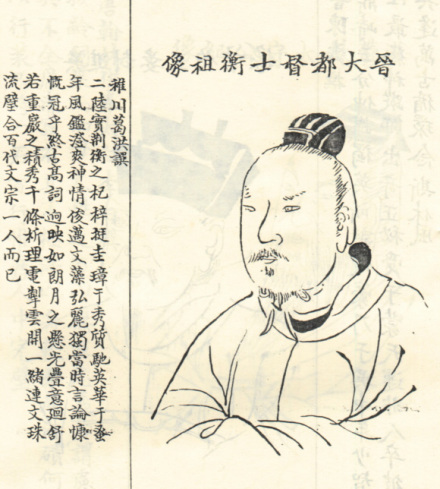 晉大都督士衡祖像
稚川葛洪譔
二陸實荆衡之杞梓挺圭璋于秀質馳英華于蚤
年風鑑澄爽神情俊邁文藻弘麗獨當時言論慷
慨冠乎終古高詞迥映如朗月之懸光疊意廻舒
若重巖之積秀千條析理電掣雲開一緒連文珠
流璧合百代文宗一人而已